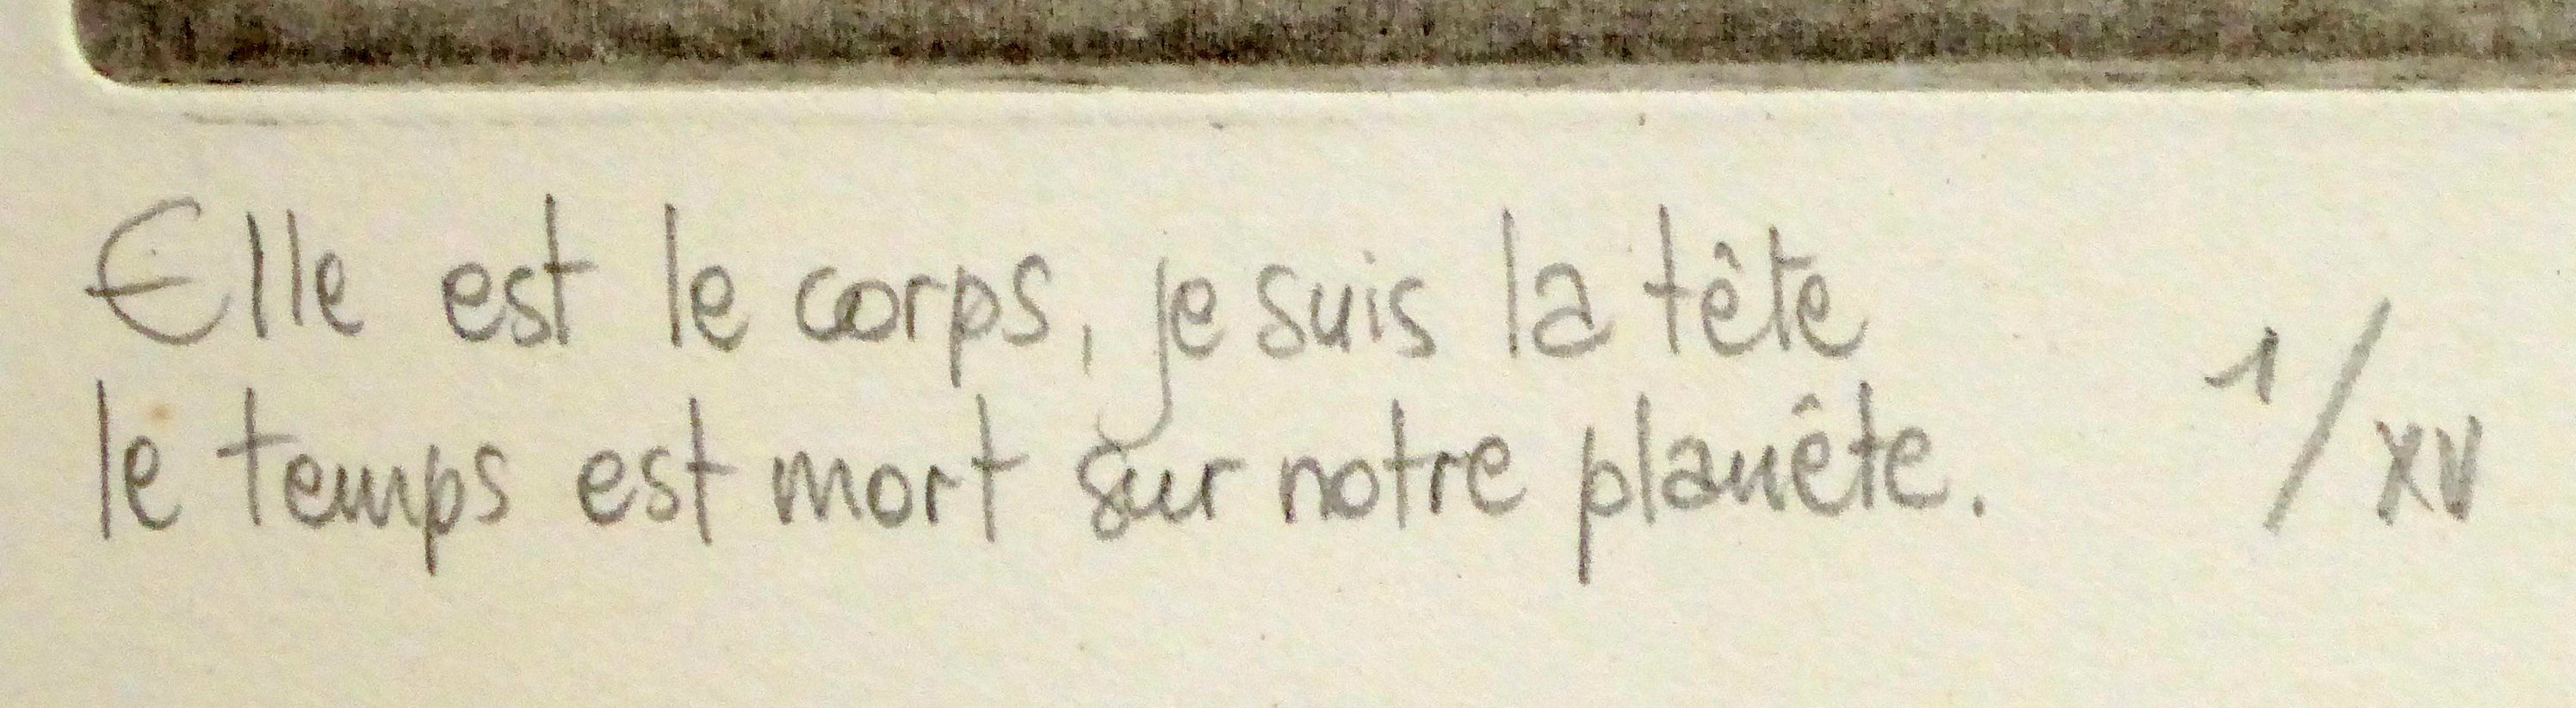 Elle est le corps, je suis la tête
le temps est mort sur notre planête.
1/XV